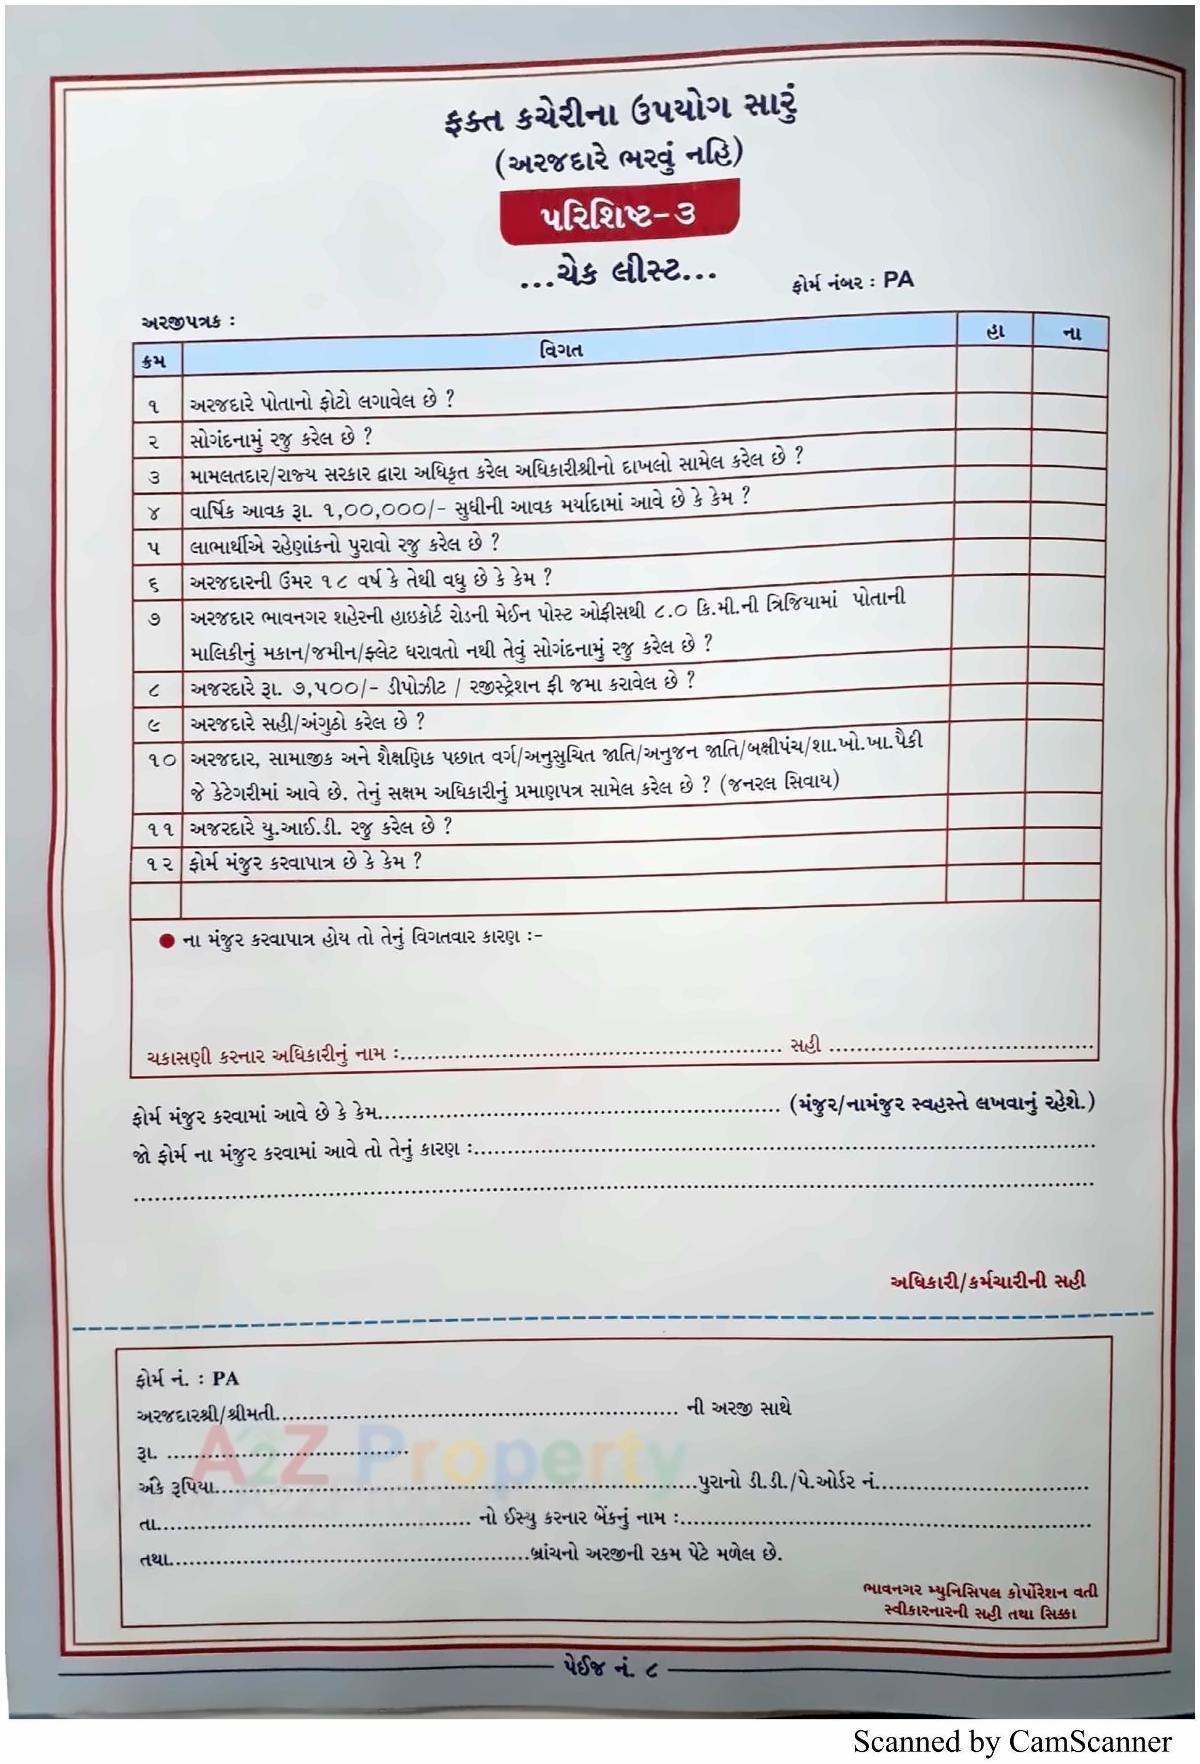 ફક્ત કચેરીના ઉપયોગ સારું
(અરજદારે ભરવું નહિ)
પરિશિષ્ટ-૩
...ચેક લીસ્ટ...
ફોર્મ નંબર : PA
અરજીપત્રક :
ક્રમ વિગત હા ના
૧ અરજદારે પોતાનો ફોટો લગાવેલ છે ?
૨ સોગંદનામું રજુ કરેલ છે ?
૩ મામલતદાર/રાજ્ય સરકાર દ્વારા અધિકૃત કરેલ અધિકારીશ્રીનો દાખલો સામેલ કરેલ છે ?
૪ વાર્ષિક આવક રૂા. ૧,૦૦,૦૦૦/- સુધીની આવક મર્યાદામાં આવે છે કે કેમ ?
૫ લાભાર્થીએ રહેણાંકનો પુરાવો રજુ કરેલ છે ?
૬ અરજદારની ઉંમર ૧૮ વર્ષ કે તેથી વધુ છે કે કેમ ?
૭ અરજદાર ભાવનગર શહેરની હાઇકોર્ટ રોડની મેઈન પોસ્ટ ઓફીસથી ૮.૦ કિ.મી.ની ત્રિજિયામાં પોતાની
માલિકીનું મકાન/જમીન/ફ્લેટ ધરાવતો નથી તેવું સોગંદનામું રજુ કરેલ છે ?
૮ અજરદારે રૂા. ૭,૫૦૦/- ડીપોઝીટ / રજીસ્ટ્રેશન ફી જમા કરાવેલ છે ?
૯ અરજદારે સહી/અંગુઠો કરેલ છે ?
૧૦ અરજદાર, સામાજીક અને શૈક્ષણિક પછાત વર્ગ/અનુસુચિત જાતિ/અનુજન જાતિ/બક્ષીપંચ/શા.ખો.ખા.પૈકી
જે કેટેગરીમાં આવે છે. તેનું સક્ષમ અધિકારીનું પ્રમાણપત્ર સામેલ કરેલ છે ? (જનરલ સિવાય)
૧૧ અજરદારે યુ.આઈ.ડી. રજુ કરેલ છે ?
૧૨ ફોર્મ મંજુર કરવાપાત્ર છે કે કેમ ?
● ના મંજુર કરવાપાત્ર હોય તો તેનું વિગતવાર કારણ :-
ચકાસણી કરનાર અધિકારીનું નામ :................................ સહી ................................
ફોર્મ મંજુર કરવામાં આવે છે કે કેમ................................ (મંજુર/નામંજુર સ્વહસ્તે લખવાનું રહેશે.)
જો ફોર્મ ના મંજુર કરવામાં આવે તો તેનું કારણ :................................
................................
અધિકારી/કર્મચારીની સહી
ફોર્મ નં. : PA
અરજદારશ્રી/શ્રીમતી................................ ની અરજી સાથે
રૂા. ................................
A2Z Property
અંકે રૂપિયા................................પુરાનો ડી.ડી./પે.ઓર્ડર નં................................
તા................................ નો ઈસ્યુ કરનાર બેંકનું નામ :................................
તથા................................બ્રાંચનો અરજીની રકમ પેટે મળેલ છે.
ભાવનગર મ્યુનિસિપલ કોર્પોરેશન વતી
સ્વીકારનારની સહી તથા સિક્કા
પેઈજ નં. ૮
Scanned by CamScanner